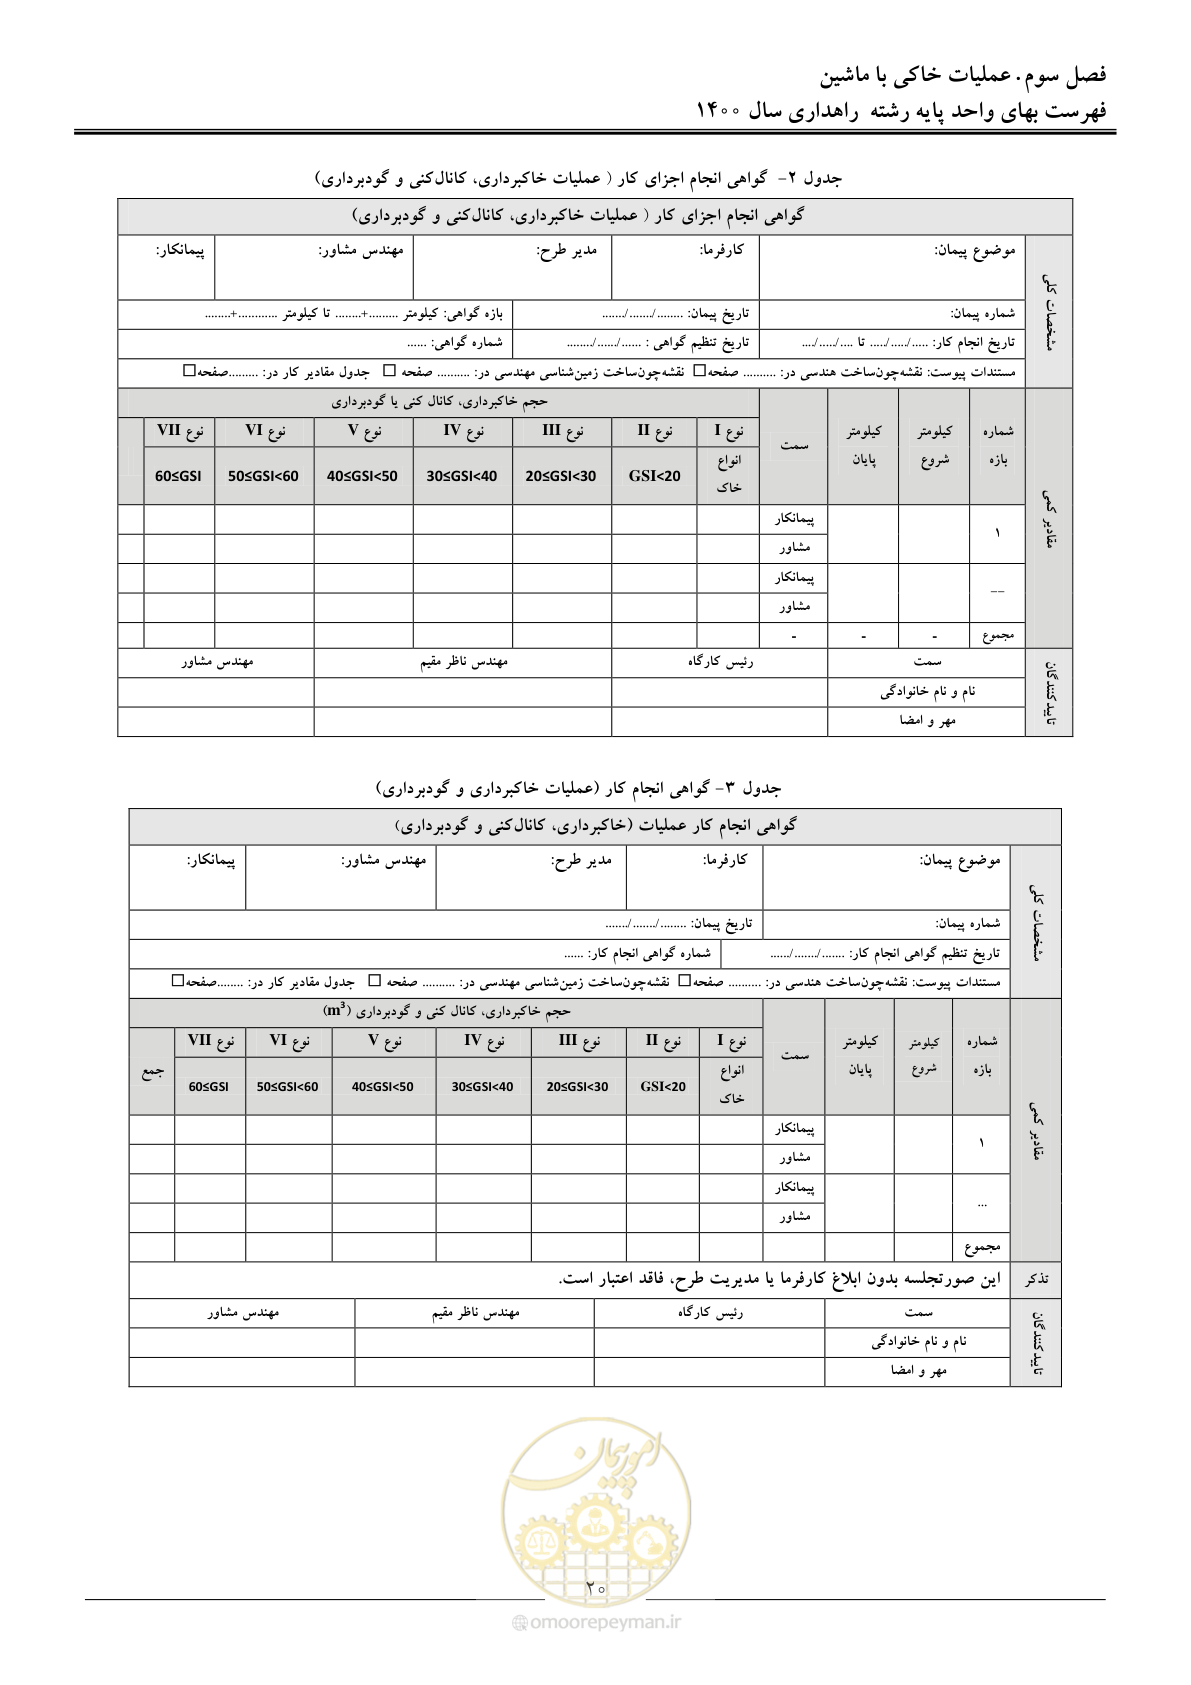 فصل سوم. عملیات خاکی با ماشین
فهرست بهای واحد پایه رشته راهداری سال ۱۴۰۰
جدول ۲- گواهی انجام اجزای کار ( عملیات خاکبرداری، کانال‌کنی و گودبرداری)
گواهی انجام اجزای کار ( عملیات خاکبرداری، کانال‌کنی و گودبرداری)
مشخصات کلی
موضوع پیمان: کارفرما: مدیر طرح: مهندس مشاور: پیمانکار:
شماره پیمان: تاریخ پیمان: ......../......./....... بازه گواهی: کیلومتر .........+........ تا کیلومتر ............+........
تاریخ انجام کار: ...../...../..... تا ..../...../.... تاریخ تنظیم گواهی : ....../....../........ شماره گواهی: ......
مستندات پیوست: نقشه‌چون‌ساخت هندسی در: .......... صفحه☐ نقشه‌چون‌ساخت زمین‌شناسی مهندسی در: .......... صفحه ☐ جدول مقادیر کار در: .........صفحه☐
مقادیر کمی
شماره بازه کیلومتر شروع کیلومتر پایان سمت حجم خاکبرداری، کانال کنی یا گودبرداری
نوع I نوع II نوع III نوع IV نوع V نوع VI نوع VII
انواع خاک GSI<20 20≤GSI<30 30≤GSI<40 40≤GSI<50 50≤GSI<60 60≤GSI
۱ پیمانکار
مشاور
__ پیمانکار
مشاور
مجموع - - -
تاییدکنندگان
سمت رئیس کارگاه مهندس ناظر مقیم مهندس مشاور
نام و نام خانوادگی
مهر و امضا
جدول ۳- گواهی انجام کار (عملیات خاکبرداری و گودبرداری)
گواهی انجام کار عملیات (خاکبرداری، کانال‌کنی و گودبرداری)
مشخصات کلی
موضوع پیمان: کارفرما: مدیر طرح: مهندس مشاور: پیمانکار:
شماره پیمان: تاریخ پیمان: ......../......./.......
تاریخ تنظیم گواهی انجام کار: ......./......./...... شماره گواهی انجام کار: ......
مستندات پیوست: نقشه‌چون‌ساخت هندسی در: .......... صفحه☐ نقشه‌چون‌ساخت زمین‌شناسی مهندسی در: .......... صفحه ☐ جدول مقادیر کار در: ........صفحه☐
مقادیر کمی
شماره بازه کیلومتر شروع کیلومتر پایان سمت حجم خاکبرداری، کانال کنی و گودبرداری (m³)
نوع I نوع II نوع III نوع IV نوع V نوع VI نوع VII جمع
انواع خاک GSI<20 20≤GSI<30 30≤GSI<40 40≤GSI<50 50≤GSI<60 60≤GSI
۱ پیمانکار
مشاور
... پیمانکار
مشاور
مجموع
تذکر این صورتجلسه بدون ابلاغ کارفرما یا مدیریت طرح، فاقد اعتبار است.
تاییدکنندگان
سمت رئیس کارگاه مهندس ناظر مقیم مهندس مشاور
نام و نام خانوادگی
مهر و امضا
امور پیمان
۲۰
omoorepeyman.ir